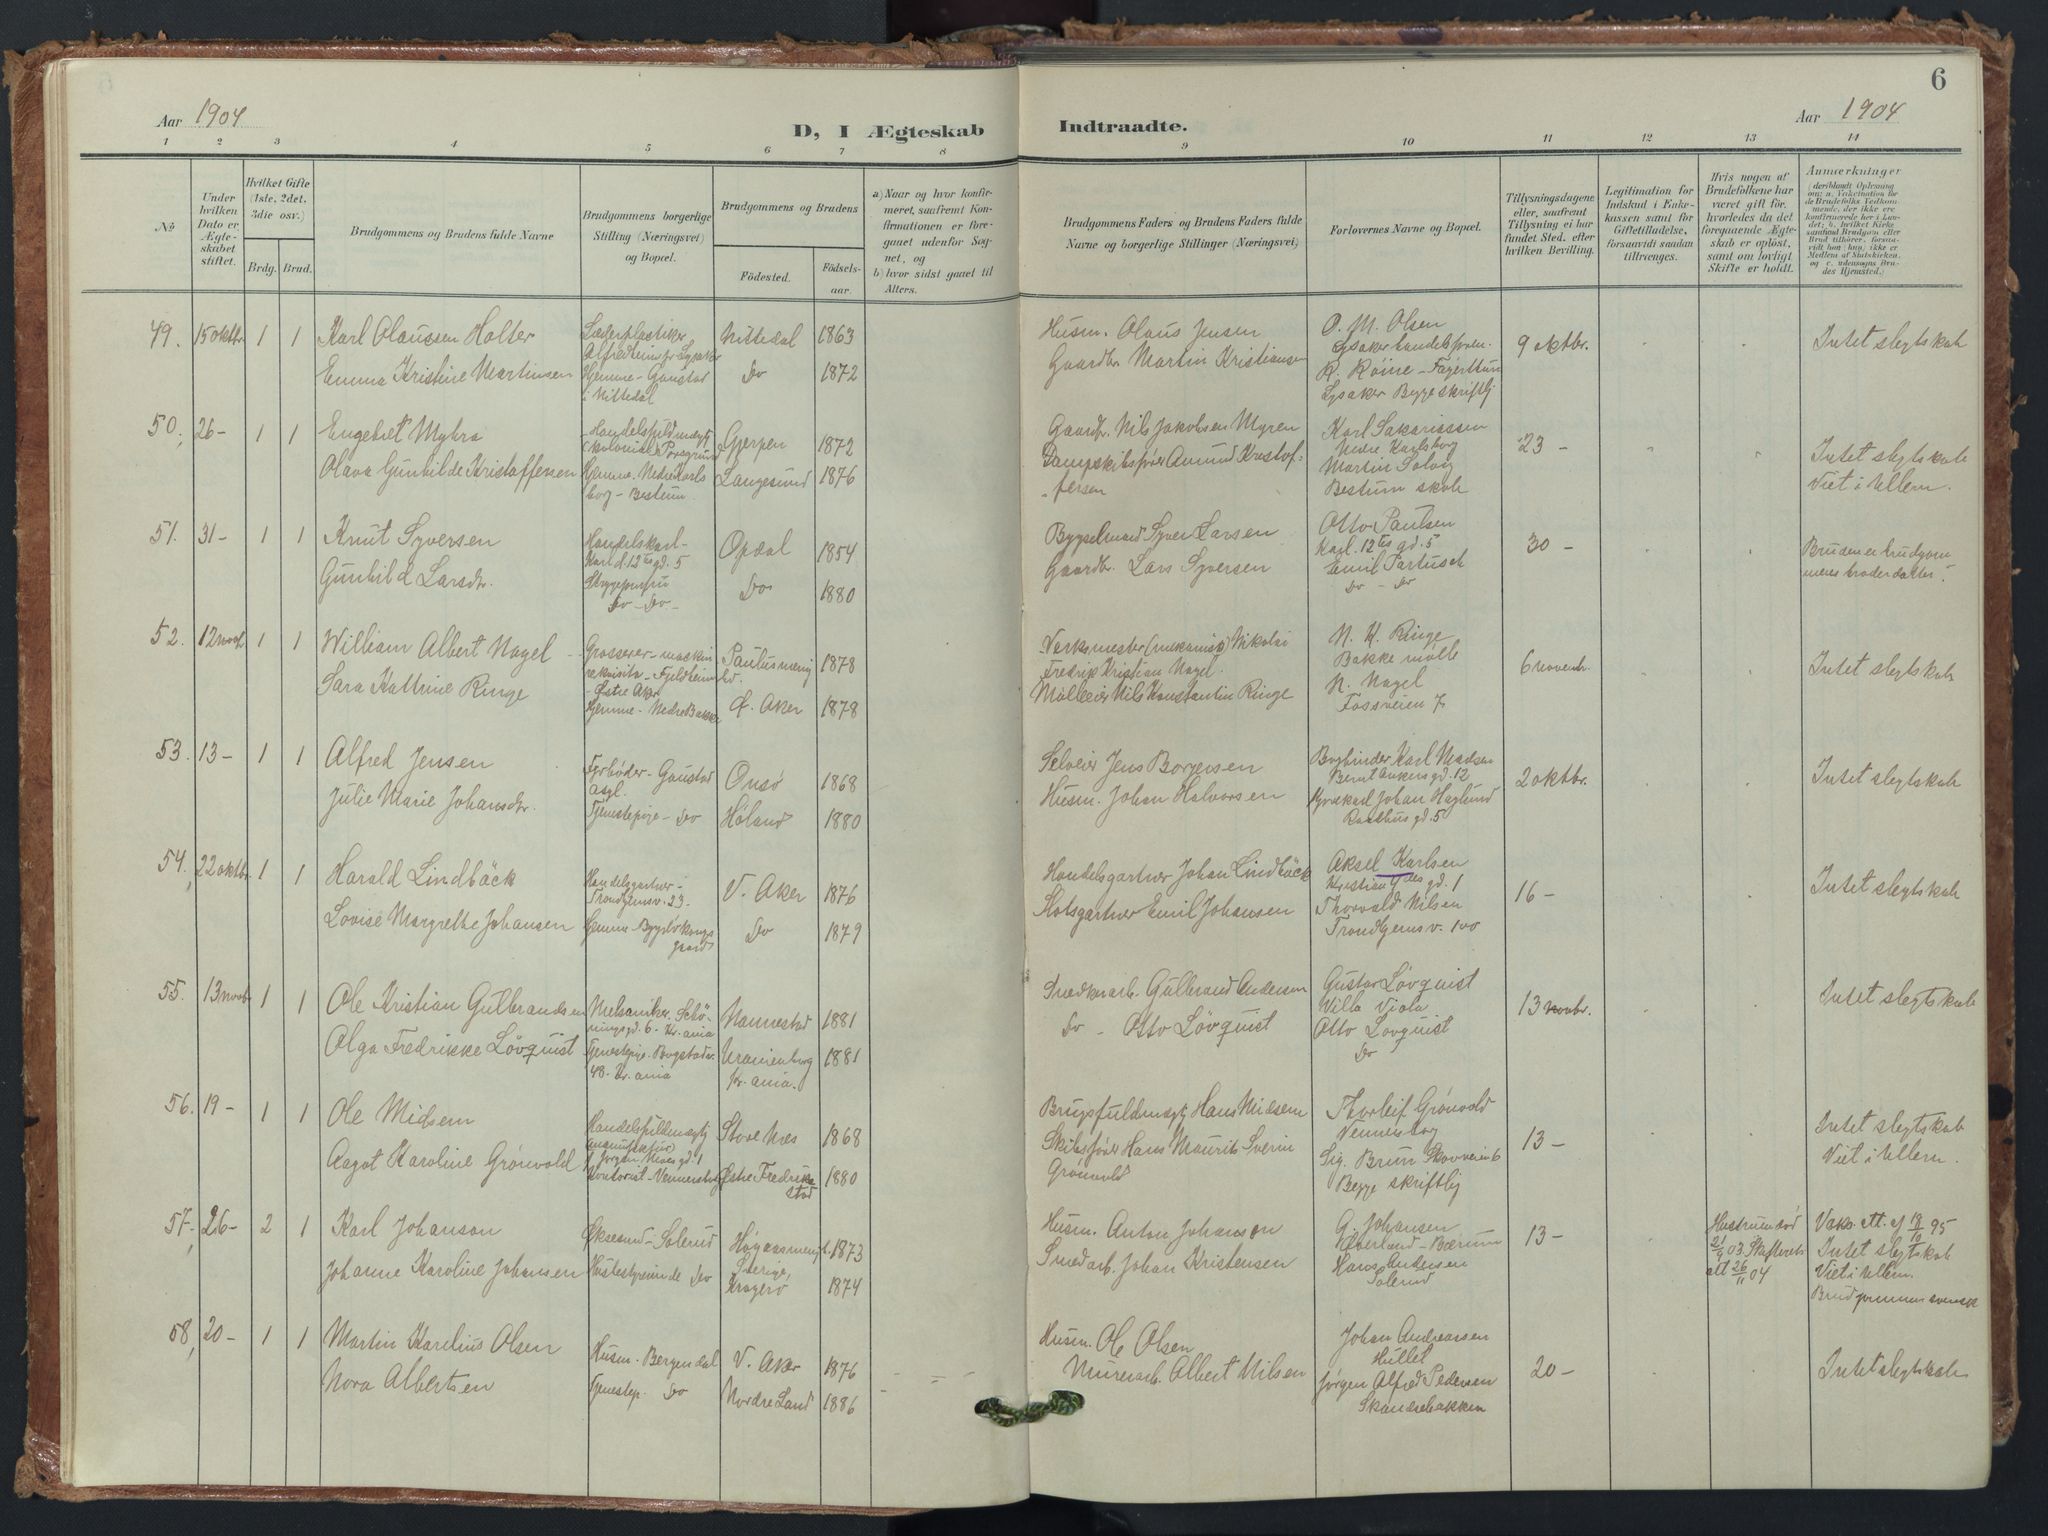 6
Aar 1904
Aar 1904
D, I Ægteskab Indtraadte.
1 2 3 4 5 6 7 8 9 10 11 12 13 14
No
Under hvilken Dato er Ægteskabet stiftet.
Hvilket Gifte (1ste, 2det. 3die osv.)
Brdg. Brud.
Brudgommens og Brudens fulde Navne
Brudgommens borgerlige Stilling (Næringsvei) og Bopæl.
Brudgommens og Brudens
Fødested.
Fødselsaar.
a) Naar og hvor konfirmeret, saafremt Konfirmationen er foregaaet udenfor Sognet, og
b) hvor sidst gaaet til Alters.
Brudgommens Faders og Brudens Faders fulde Navne og borgerlige Stillinger (Næringsvei)
Forlovernes Navne og Bopæl.
Tillysningsdagene eller, saafremt Tillysning ei har fundet Sted, efter hvilken Bevilling.
Legitimation for Indskud i Enkekassen samt for Giftetilladelse, forsaavidt saadan tiltrænges.
Hvis nogen af Brudefolkene har været gift før, hvorledes da det foregaaende Ægteskab er opløst, samt om lovligt Skifte er holdt.
Anmærkninger
49. 15 oktbr. 1 1 Karl Olaussen Holter
Nittedal 1863
Husm. Olaus Jensen
O. M. Olsen
9 oktbr.
Intet slegtskab
Emma Kristine Martinsen
Hjemme - Gaustad i Nittedal
Do 1872
Gaardbr. Martin Kristiansen
Lysaker
50, 26- 1 1 Engebret Myhra
Gjerpen 1872
Gaardbr. Nils Jakobsen Myren
Karl Sakariassen
Nedre Karlsborg
23 -
Intet slegtskab
Viet i Ullern.
Olava Gunhilde Kristoffersen
Hjemme - Nedre Karlsborg - Bestum
Langesund 1876
Dampskibsfører Amund Kristoffersen
Martin Solvig
Bestum skole
51. 31- 1 1 Knut Syversen
Handelskarl - Karl d. 12tes gd. 5
Opdal 1854
Bygselmand Syver Larsen
Otto Paulsen
Karl. 12tes gd. 5
30 -
Bruden er brudgommens broderdatter.
Gunhild Larsdtr.
Do - Do -
Do 1880
Gaardbr. Lars Syversen
Emil Partusch
Do - Do
52. 12 novbr. 1 1 William Albert Nagel
Grosserer - maskinrekvisita - Fjeldheim - Østre Aker
1878
Verksmester (mekanisk) Nikolai Fredrik Kristian Nagel.
N. K. Ringe
Bakke mølle
6 novembr.
Intet slegtskab
Sara Kathrine Ringe
Hjemme - Nedre Bakke
Ø. Aker 1878
Mølleeier Nils Konstantin Ringe
N. Nagel
Fossveien 7
53. 13- 1 1 Alfred Jensen
Fyrbøder - Gaustad asyl.
Onsø 1868
Selveier Jens Borgersen
Bogbinder Karl Madsen
Bernt Ankers gd. 12
2 oktbr.
Intet slegtskab
Julie Marie Johansdtr.
Tjenestepige - Do
Høland 1880
Husm. Johan Halvorsen
Johan Haglund
Raadhus gd. 5
54, 22 oktbr. 1 1 Harald Lindbäck
Handelsgartner - Trondhjemsv. 23.
V. Aker 1876
Handelsgartner Johan Lindbäck
Aksel Karlsen
16 -
Intet slegtskab
Lovise Margrethe Johansen
Do 1879
Slotsgartner Emil Johansen
Thorvald Nilsen
Trondhjemsv. 100
55. 13 novbr. 1 1 Ole Kristian Gulbrandsen
Schöningsgd. 6 - Kr.ania
Nannestad 1881
Snedkerarb. Gulbrand Andersen
Gustav Lövquist
Villa Viola
13 novbr.
Intet slegtskab
Olga Fredrikke Lövquist
Tjenestepige - Bogstadv. 48 - Kr.ania
Uranienborg Kr.ania. 1881
Do - Otto Lövquist
Otto Lövquist
Do
56. 19- 1 1 Ole Midsem
Jørgen Moes gd. 1
1868
Brugsfuldmægtig Hans Midsem
Thorleif Grønvold
Vennersborg
13 -
Intet slegtskab
Viet i Ullern.
Aagot Karoline Grønvold
Kontorist - Vennersborg
Østre Fredrikstad 1880
Skibsfører Hans Maurits Sverin Grønvold
Sig. Brun Skovveien 6
Begge skriftlig
57, 26- 2 1 Karl Johanson
Solerud
Sverige, 1873
Husm. Anton Johanson
G. Johansen
Bærum
13 -
Hustruen død 21/9 03 Skifteret att 26/11 04
Vaks. att. af 18/10 95
Intet slegtskab
Viet i Ullern.
Brudgommen svensk
Johanne Karoline Johansen
Husbestyrerinde Do
Kragerø 1874
Johan Kristensen
Hans Andersen
Solerud
58, 20- 1 1 Martin Karelius Olsen
Husm. Bergendal
V. Aker 1876
Husm. Ole Olsen
Johan Andreassen
Hullet
20 -
Intet slegtskab
Nora Albertsen
Tjenestep. Do
Nordre Land 1886
Murerarb. Albert Nilsen
Jørgen Alfred Pedersen
Skandsebakken